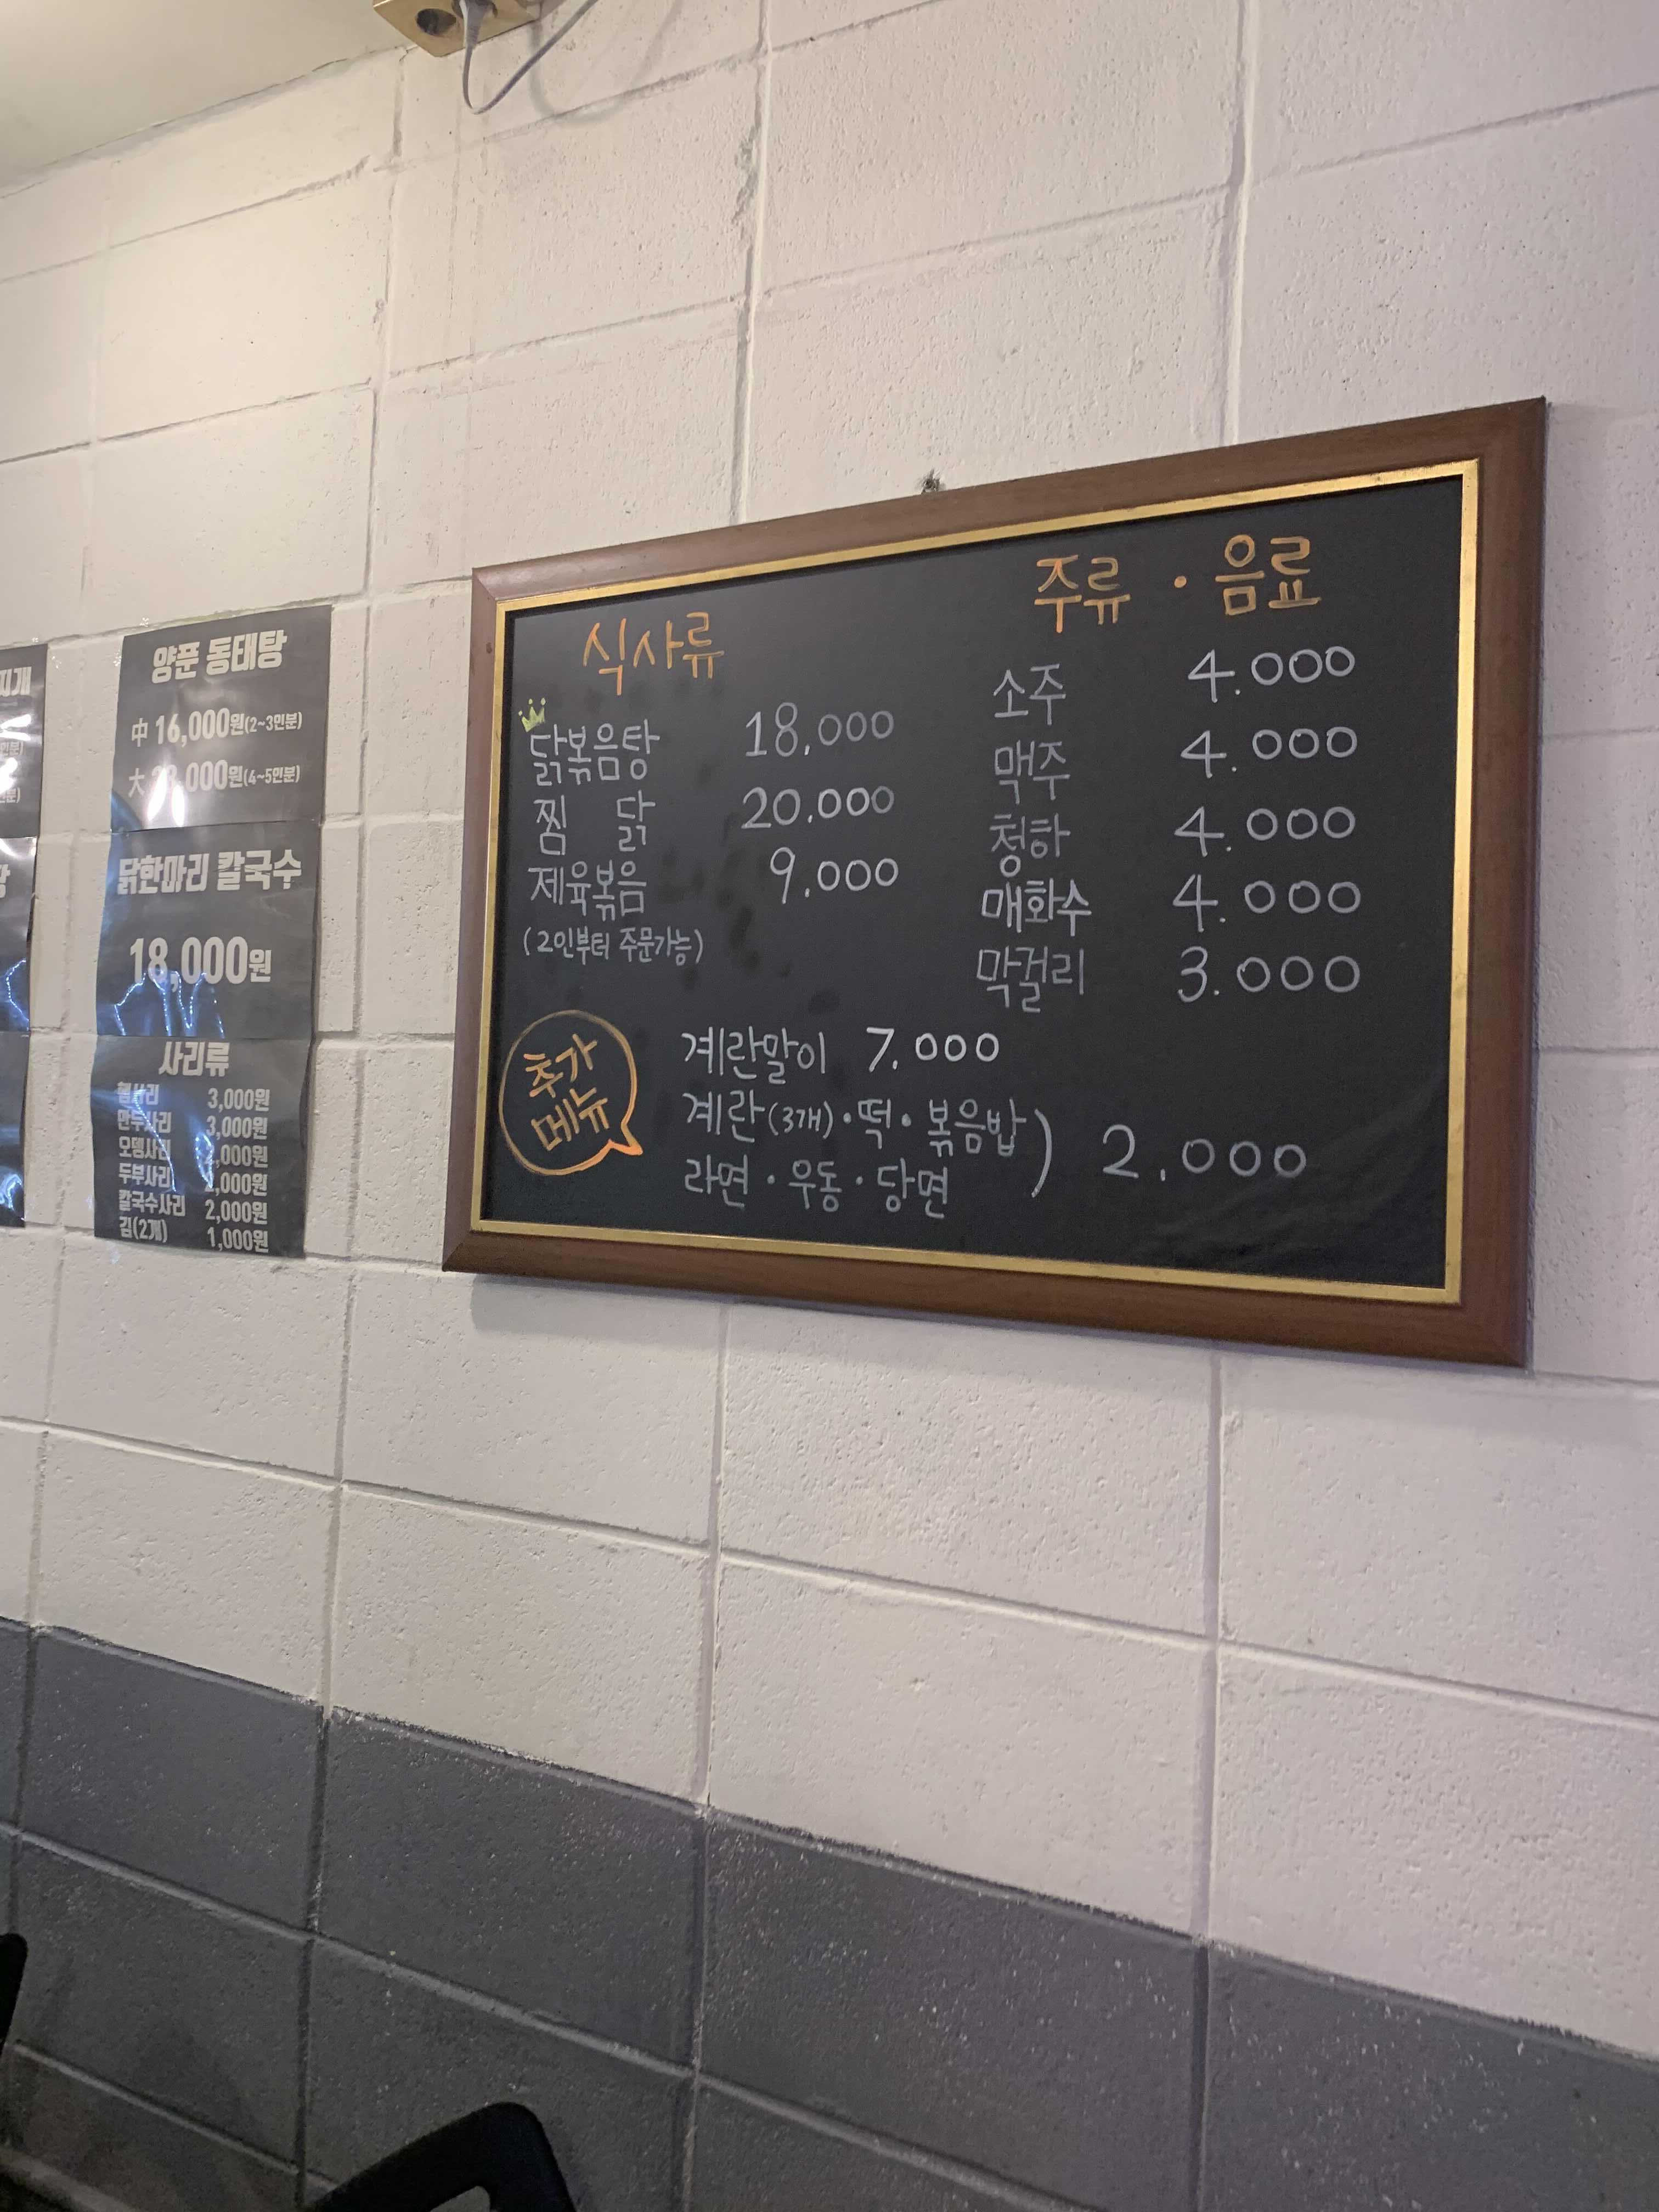 찌개
양푼 동태탕
中 16,000원(2~3인분)
大 000원(4~5인분)
닭한마리 칼국수
18,000원
사리류
3,000원
만두사리 3,000원
오뎅사리 ,000원
두부사리 2,000원
칼국수사리 2,000원
김(2개) 1,000원
식사류
닭볶음탕 18,000
찜 닭 20,000
제육볶음 9,000
(2인부터 주문가능)
주류 · 음료
소주 4.000
맥주 4.000
청하 4.000
매화수 4.000
막걸리 3.000
추가
메뉴
계란말이 7.000
계란(3개)·떡·볶음밥
라면·우동·당면 ) 2.000